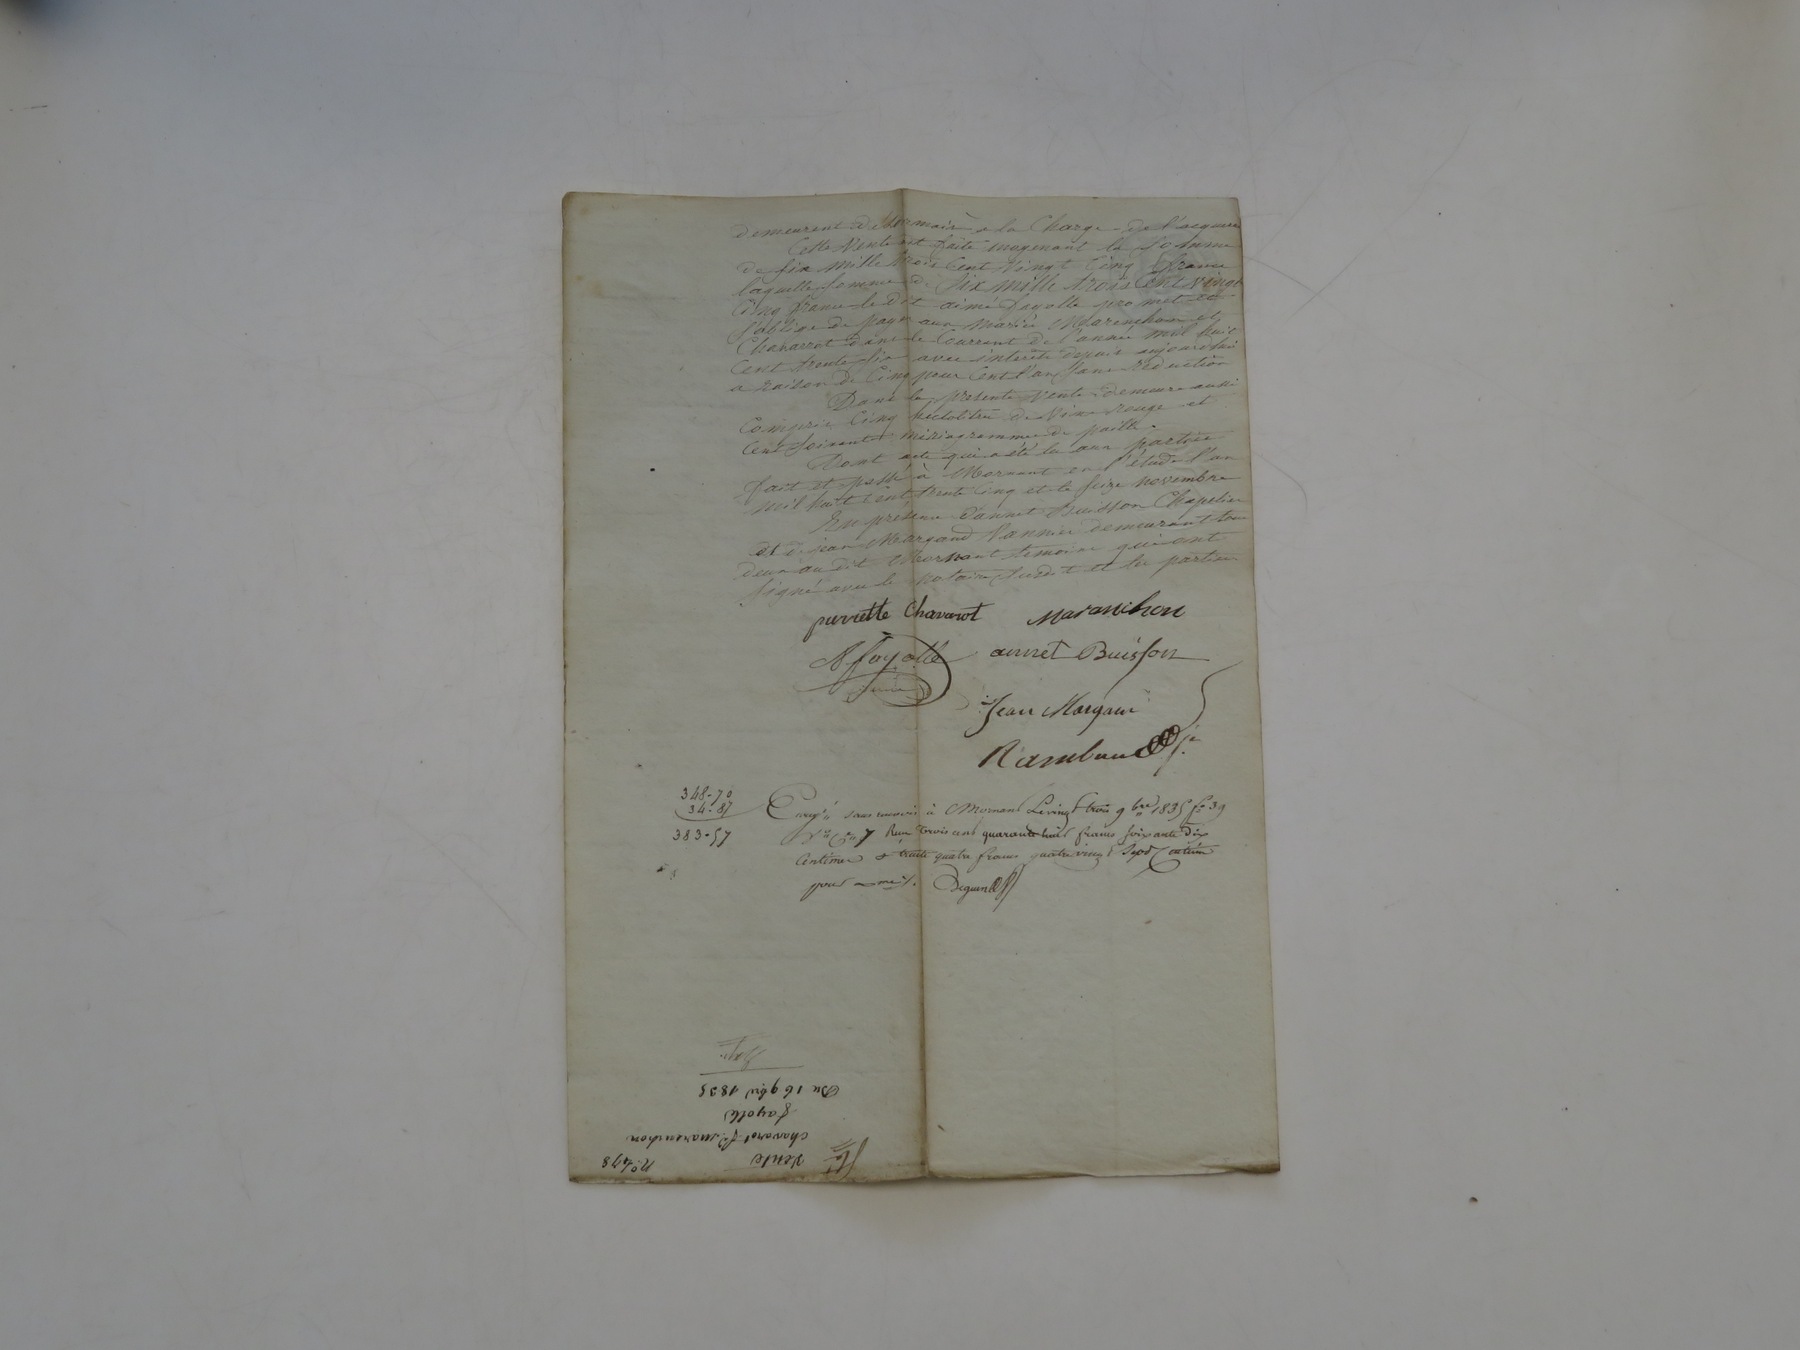 demeurent désormais a la Charge de l'acquereur
Cette Vente est faite moyenant la Somme
de six mille trois Cent Vingt Cinq francs
laquelle somme de Six mille trois Cent vingt
Cinq francs le dit aimé fayolle promet et
s'oblige de payer aux mariés Maranchon et
Chavarot dans le Courrent de l'année mil huit
Cent trente six avec interets depuis aujourdhui
a raison de Cinq pour Cent l'an sans réduction
Dans la presente Vente demeure aussi
Compris Cinq hectolitres de Vin rouge et
Cent soixante miriagrammes de paille.
Dont acte qui a été lu aux parties
fait et passé à Mornant en l'étude l'an
mil huit Cent trente Cinq et le seize novembre
En présence d'annet Buisson Chapelier
et de jean Margand Vannier demeurant tous
deux au dit Mornant temoins qui ont
signé avec le notaire Susdit et les parties
pierrette Chavarot Maranchon
A fayolle annet Buisson
Jean Margand
Rambaud
348-70
34-87
383-57
Enreg.é sans renvois à Mornant Le vingt trois 9bre 1835 f° 39
7 Reçu trois cens quarante huit francs soixante dix
Centimes & trente quatre francs quatre vingt sept Centimes
pour
N° 478
Vente
Chavarot fe maranchon
fayolle
Du 16 9bre 1835